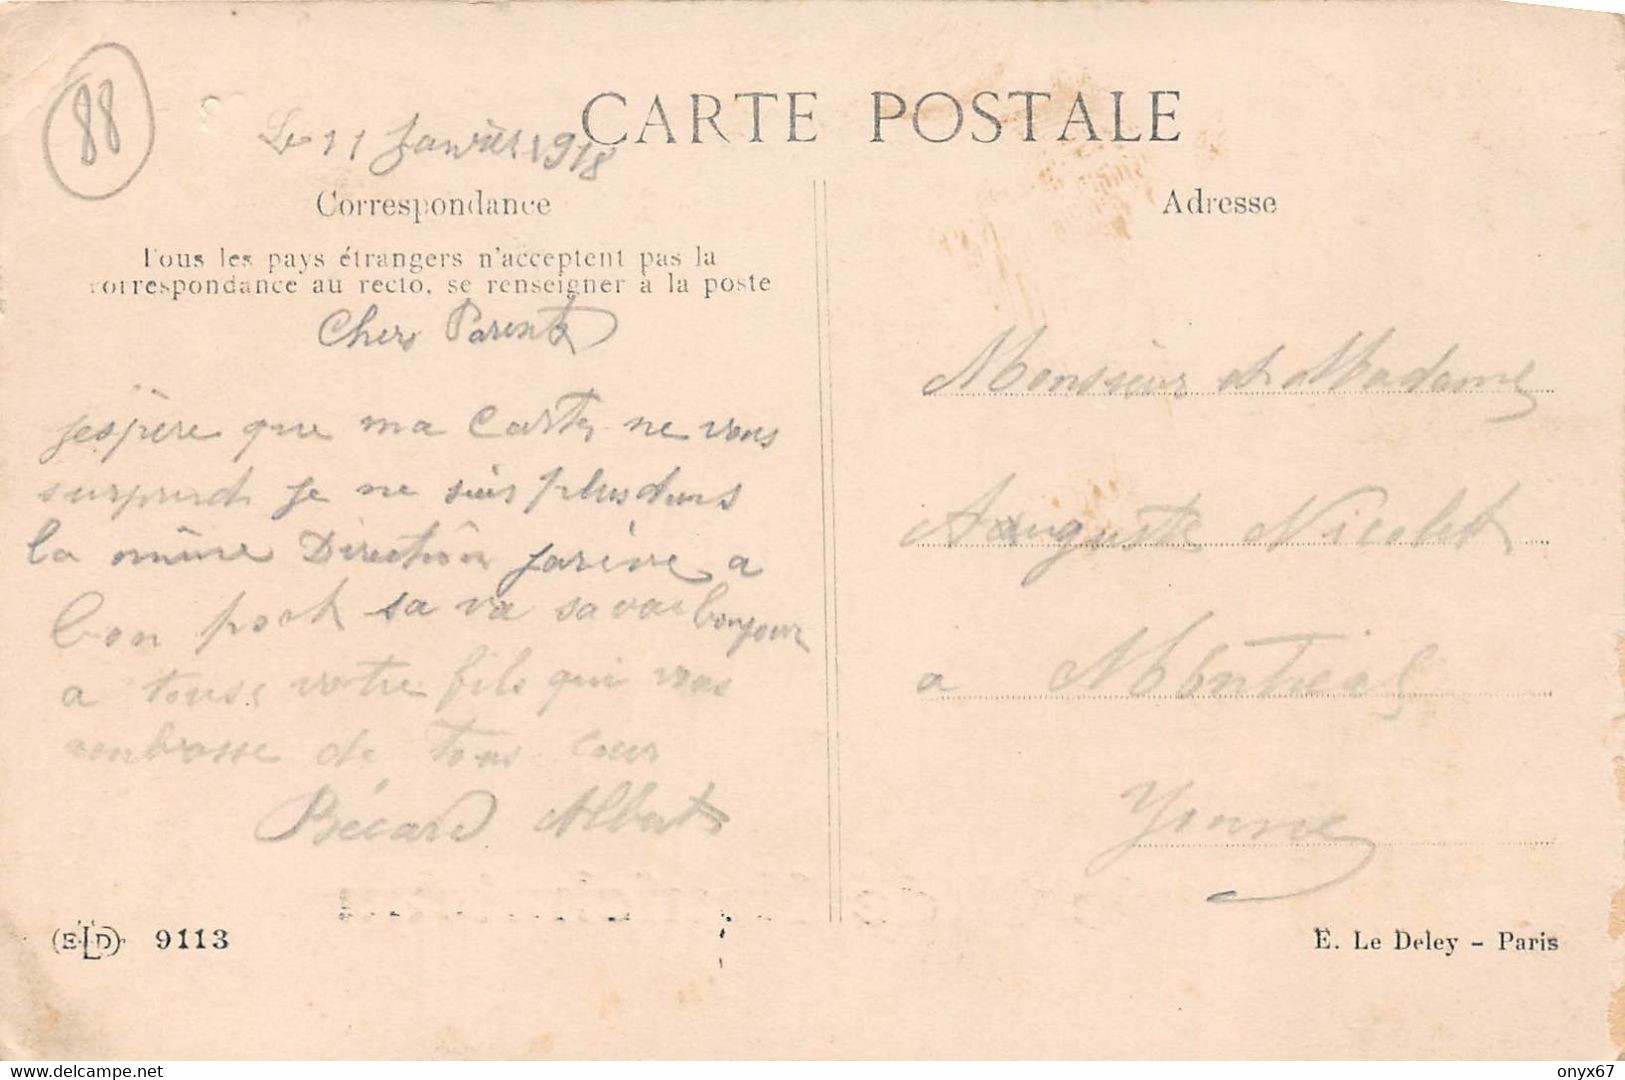 88
CARTE POSTALE
Le 11 Janvier 1918
Correspondance
Tous les pays étrangers n'acceptent pas la
correspondance au recto, se renseigner à la poste
Chers Parents
jespère que ma Carte ne vous
surprend je ne suis plus dans
la même Direction jarive a
bon port sa va bonjour
a tous votre fils qui vous
embrasse de tous cour
Bécard Albert
Adresse
Monsieur et Madame
Auguste Nicolet
a Montreal
Yonne
ELD 9113
E. Le Deley - Paris
https://www.delcampe.net
onyx67